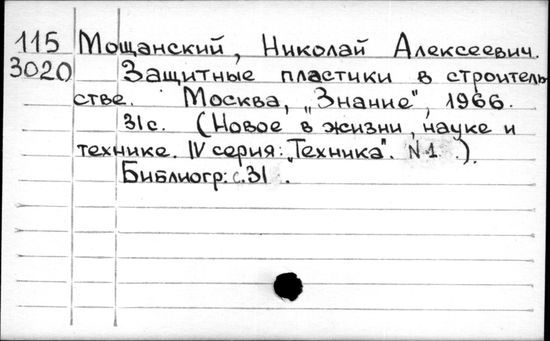 115 Мощанский, Николай Алексеевич.
3020 Защитные пластики в строитель
стве. Москва, „Знание", 1966.
31с. (Новое в жизни, науке и
технике. IV серия: „Техника". N1.).
Библиогр: с.31.